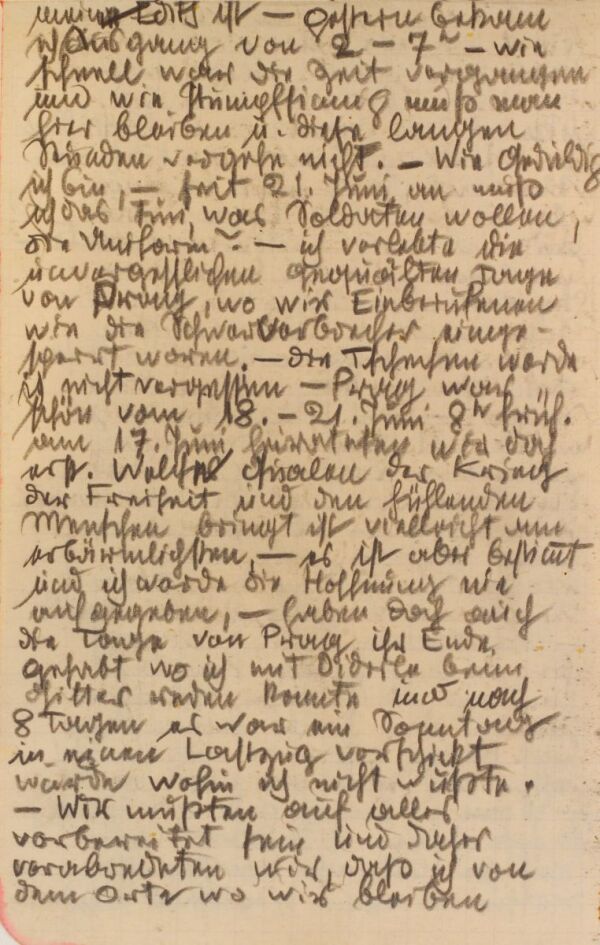 meine Edith ist — Gestern bekam
ich Ausgang von 2 – 7ʰ — wie
schnell war die Zeit vergangen
und wie stumpfsinnig muß man
hier bleiben u. diese langen
Stunden vergehn nicht. — Wie geduldig
ich bin, — seit 21. Juni an muß
ich das tun, was Soldaten wollen,
die Uniform — ich verlebte die
unvergesslichen gequälten Tage
von Prag, wo wir Einberufenen
wie die Schwerverbrecher einge-
sperrt waren. — die Tschechen werde
ich nicht vergessen — Prag war
schön vom 18. – 21. Juni 8ʰ früh.
am 17. Juni heirateten wir doch
erst. Welche Qualen der Krieg
der Freiheit und den fühlenden
Menschen bringt ist vielleicht am
erbärmlichsten, — es ist aber bestimt
und ich werde die Hoffnung nie
aufgegeben, — haben doch auch
die Tage von Prag ihr Ende
gehabt wo ich mit beim
Gitter reden konnte und nach
8 Tagen es war ein Sonntag
in einen Lastzug verschickt
wurde wohin ich nicht wußte.
— Wir mußten auf alles
vorbereitet sein und daher
verabredeten wir, daß ich von
dem Orte wo wir bleiben